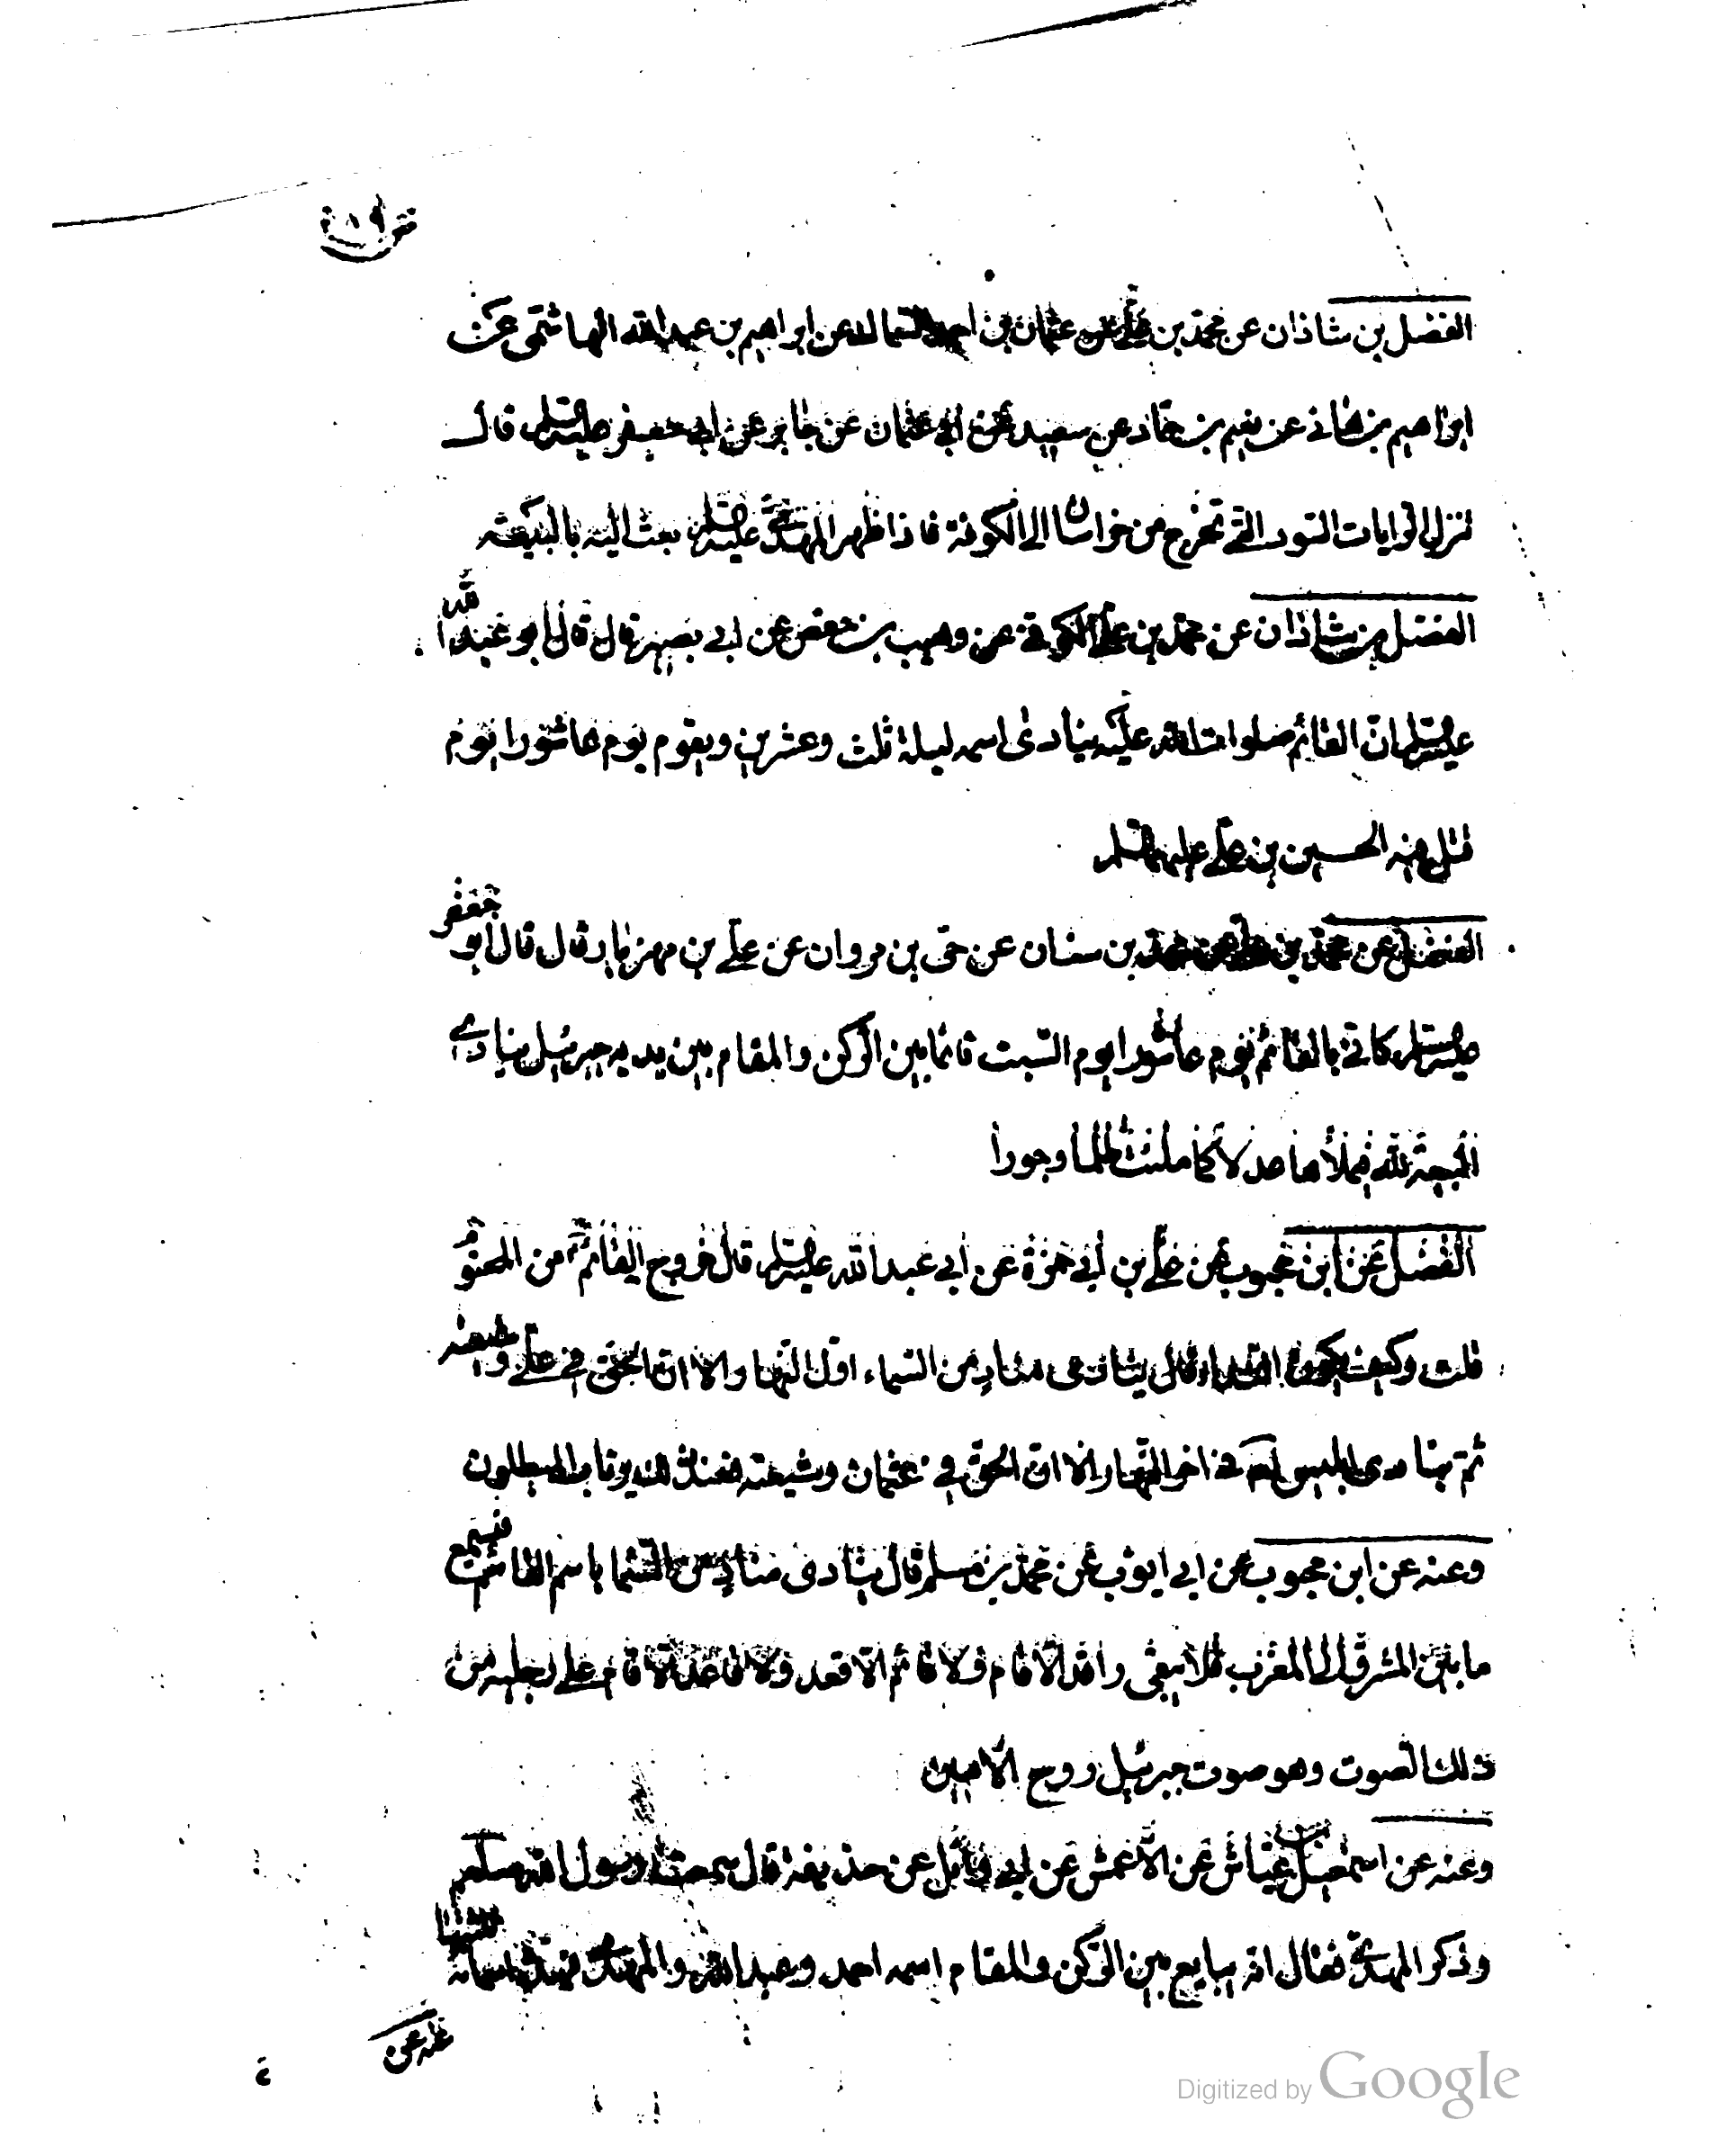 الفضل بن شاذان عن محمد بن علي عن عثمان بن احمد السماك عن ابراهيم بن عبد الله الهاشمي عن
ابراهيم بن هاني عن نعيم بن حماد عن سعيد عن ابي عثمان عن جابر عن ابي جعفر عليه السلم قال
تنزل الرايات السود التي تخرج من خراسان الى الكوفة فاذا ظهر المهدي عليه السلم بعث اليه بالبيعة
الفضل بن شاذان عن محمد بن علي الكوفي عن وهيب بن حفص عن ابي بصير قال قال ابو عبد الله
عليه السلم ان القائم صلوات الله عليه ينادى اسمه ليلة ثلث وعشرين ويقوم يوم عاشورا يوم
قتل فيه الحسين بن علي عليهما السلم
الفضل عن محمد بن علي عن محمد بن سنان عن حي بن مروان عن علي بن مهزيار قال قال ابو جعفر
عليه السلم كاني بالقائم يوم عاشورا يوم السبت قائما بين الركن والمقام بين يديه جبرئيل ينادي
البيعة لله فيملأها عدلا كما ملئت ظلما وجورا
الفضل عن ابن محبوب عن علي بن ابي حمزة عن ابي عبد الله عليه السلم قال خروج القائم من المحتوم
قلت وكيف يكون النداء قال ينادى مناد من السماء اول النهار الا ان الحق في علي وشيعته
ثم ينادى ابليس في اخر النهار الا ان الحق في عثمان وشيعته فعند ذلك يرتاب المبطلون
وعنه عن ابن محبوب عن ابي ايوب عن محمد بن مسلم قال ينادى مناد من السما باسم القائم فيسمع
ما بين المشرق الى المغرب فلا يبقى راقد الا قام ولا قائم الا قعد ولا قاعد الا قام على رجليه من
ذلك الصوت وهو صوت جبرئيل روح الامين
وعنه عن اسمعيل بن عياش عن الاعمش عن ابي وائل عن حذيفة قال سمعت رسول الله صلعم
وذكر المهدي فقال انه يبايع بين الركن والمقام اسمه احمد وعبد الله والمهدي فهذه اسمائه ثلثتها
عنه عن
Digitized by Google